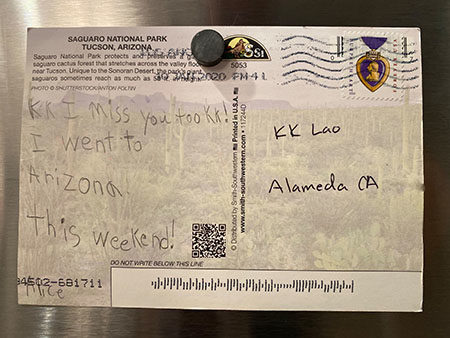 SAGUARO NATIONAL PARK
TUCSON, ARIZONA
Saguaro National Park protects and preserves a
saguaro cactus forest that stretches across the valley floor
near Tucson. Unique to the Sonoran Desert, the park's
saguaros sometimes reach as much as
PHOTO © SHUTTERSTOCK/ANTON FOLTIN
5053
2020 PM 4 L
KK I miss you too KK!
I went to
Arizona
This weekend!
Alice
94502-681711
© Distributed by Smith-Southwestern Printed in U.S.A. • 117244D
www.smith-southwestern.com
KK Lao
Alameda CA
DO NOT WRITE BELOW THIS LINE